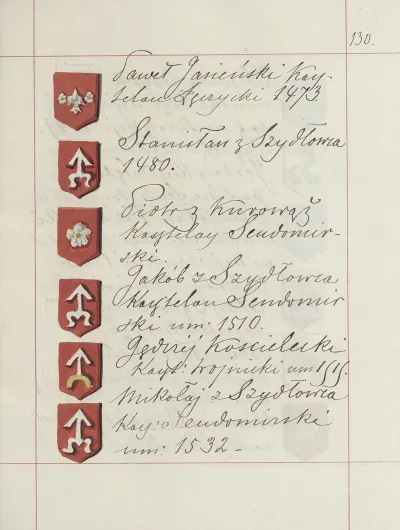 130.
Paweł Jasieński Kay-
telan Łęczycki 1473.
Stanisław z Szydłowca
1480.
Piotr z Kurowąż
Kasztelay Sendomir-
ski.
Jakób z Szydłowca
Kaytelan Sendomir
ski um: 1510.
Kościelecki
Kayt: Wojnicki um 1515.
Mikołaj z Szydłowca
Kay: Sendomirski
um: 1532 -